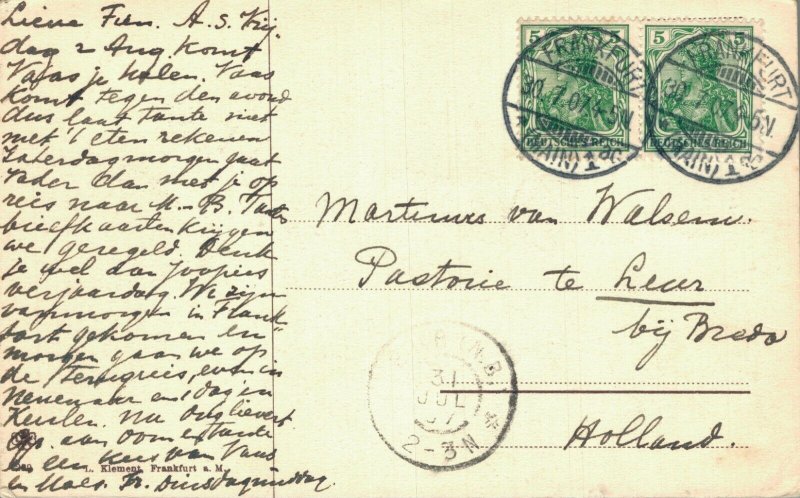 Lieve Fien. A.S. Vrij-
dag 2 Aug komt
Vaas je halen. Vaas
komt tegen den avond
dus laat tante niet
met 't eten rekenen
Zaterdagmorgen gaat
Vader dan met je op
reis naar M.-B.
briefkaarten krijgen
we geregeld. Denk
je wel aan Joopies
verjaardag. We zijn
vanmorgen in Frank
fort gekomen en
morgen gaan we op
de terugreis, even in
en 1 dag in
Keulen. Nu
aan oom en tante
en een kus van Vaas
en Moes. Fr. Dinsdagmiddag.
L. Klement, Frankfurt a. M.
5 5
5 5
DEUTSCHES REICH
DEUTSCHES REICH
FRANKFURT
30.7.07.4-5N.
(MAIN) 1
FRANKFURT
(MAIN) 1
Martinus van Walsem.
Pastorie te Leur
bij Breda
Holland.
31
JUL
07
2-3N